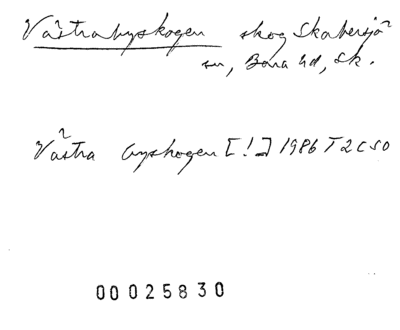 Västrabyskogen skog Skabersjö
sn, Bara hd, Sk.
Västra byskogen [!] 1986 T2C50
00 025830